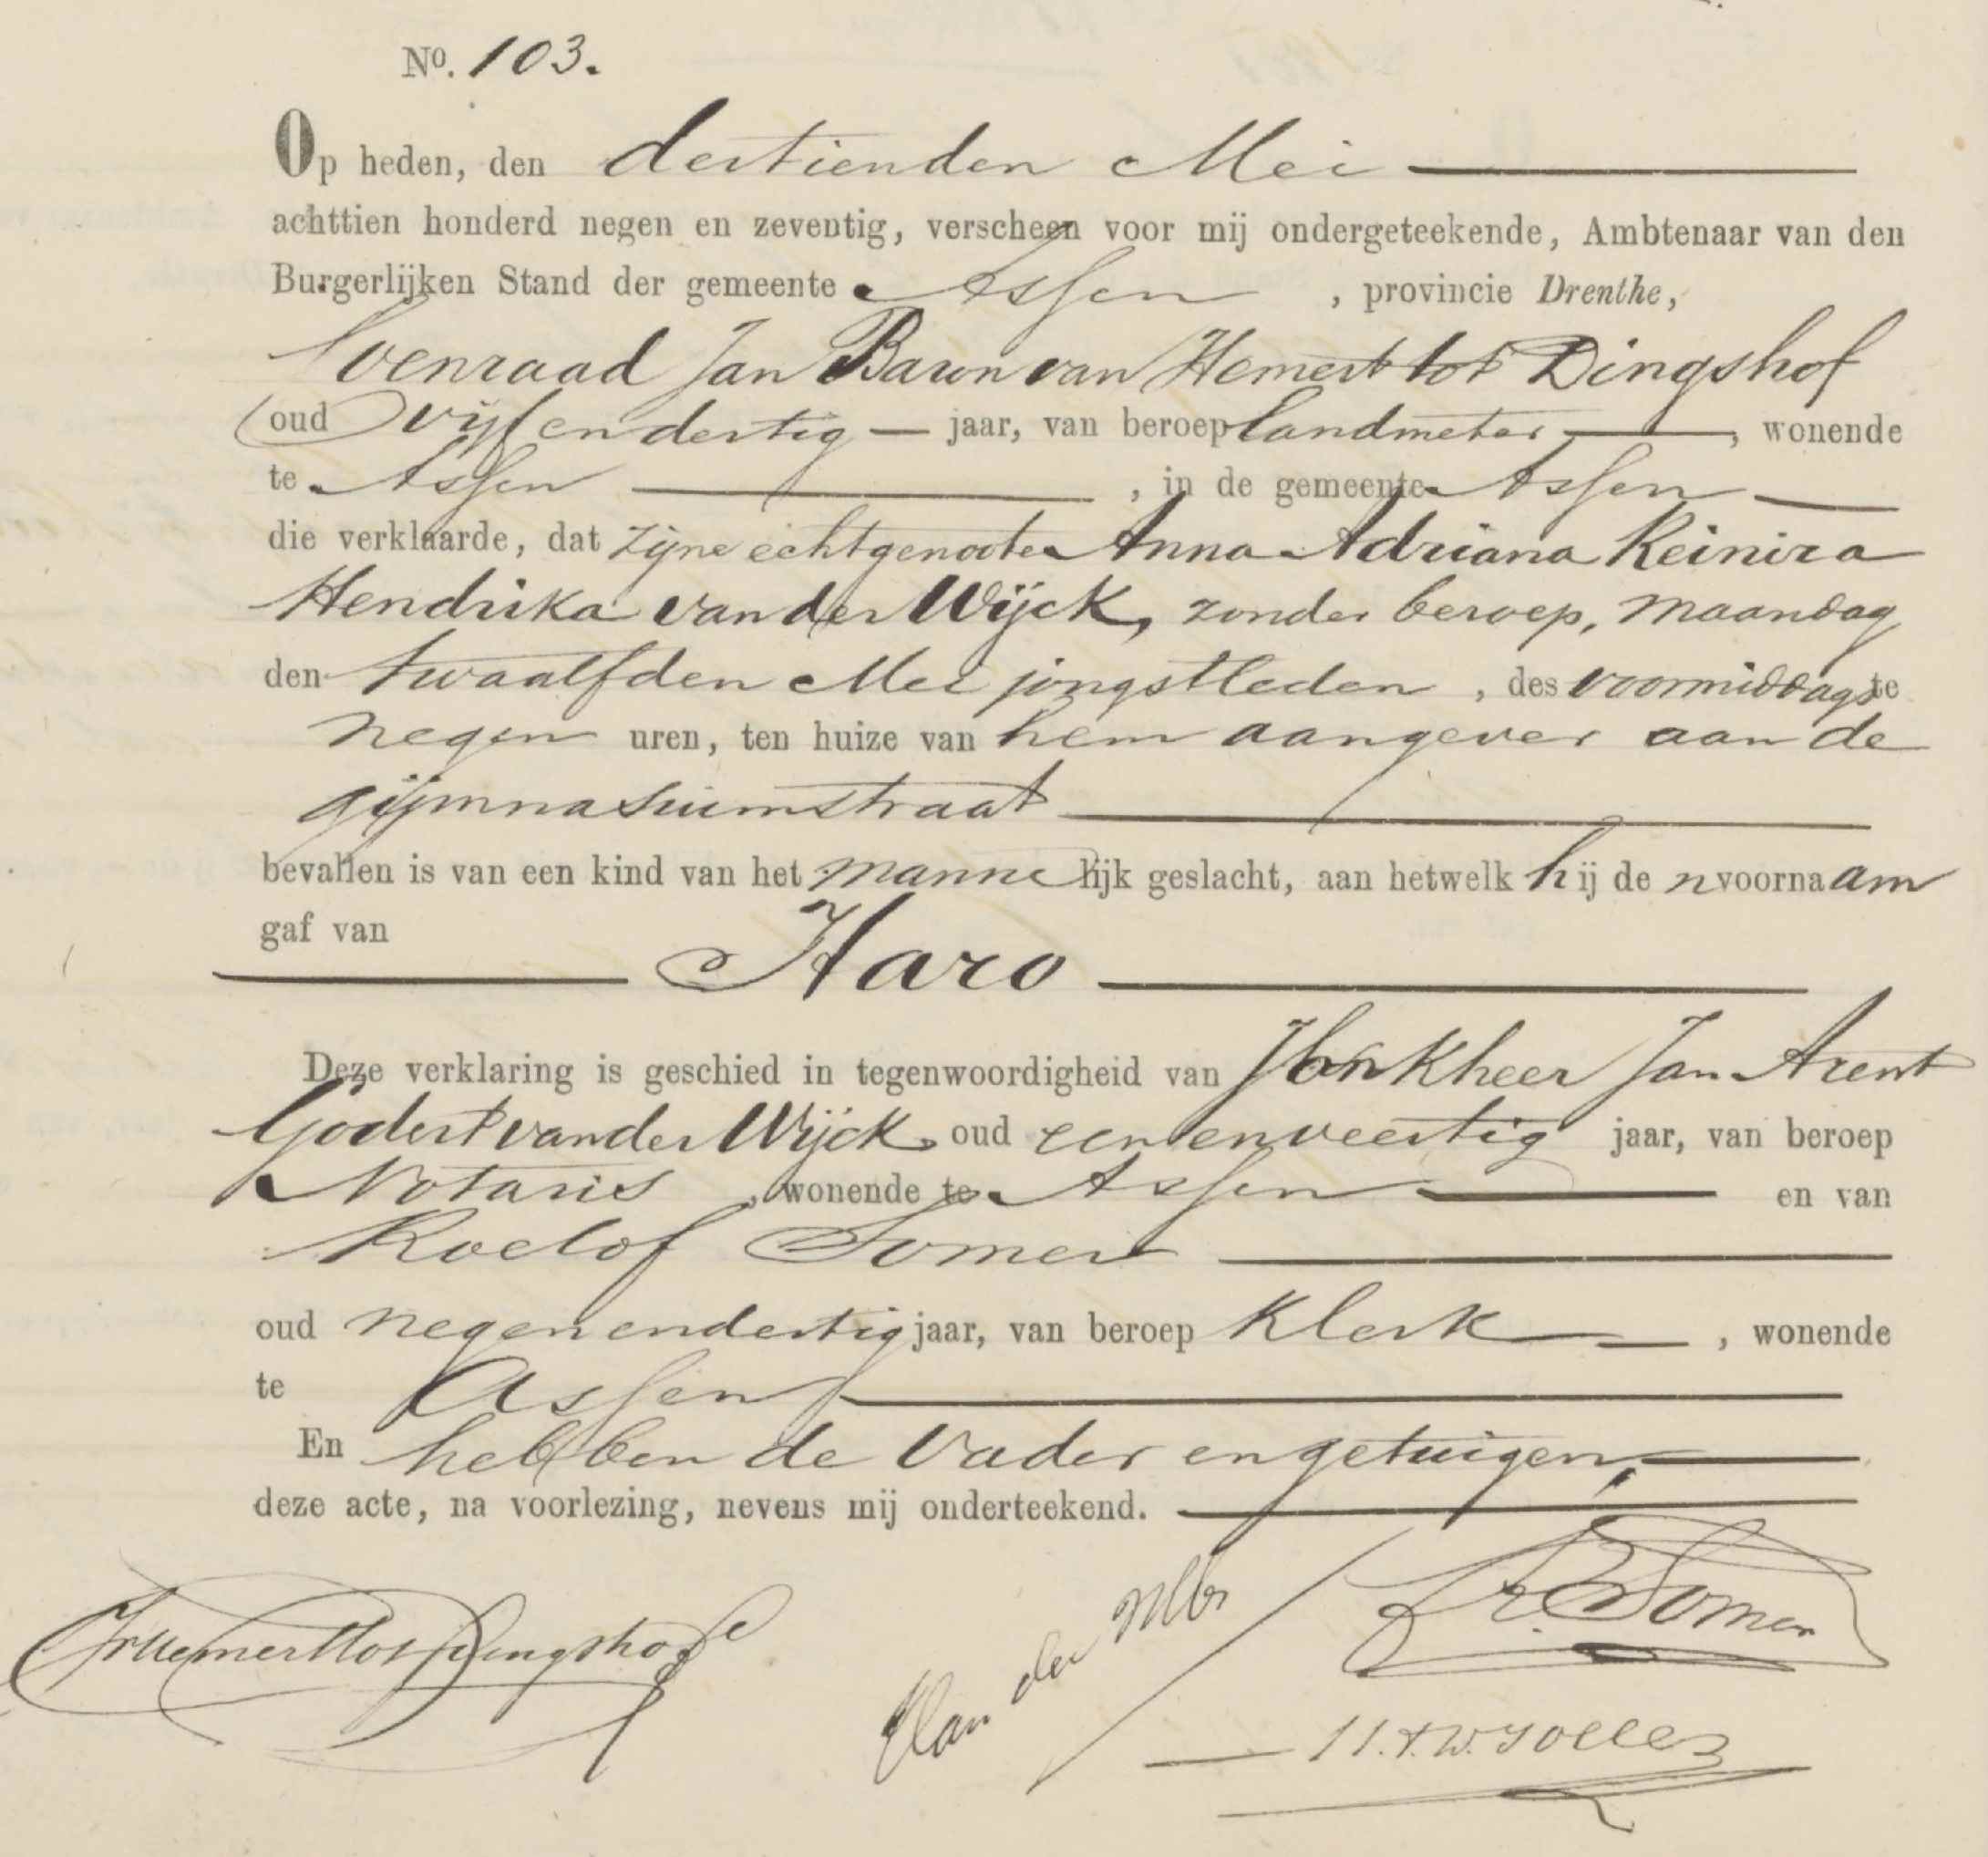 No. 103.
Op heden, den dertienden Mei
achttien honderd negen en zeventig, verscheen voor mij ondergeteekende, Ambtenaar van den
Burgerlijken Stand der gemeente Assen, provincie Drenthe,
Coenraad Jan Baron van Hemert tot Dingshof
oud vijfendertig jaar, van beroep landmeter, wonende
te Assen, in de gemeente Assen
die verklaarde, dat zijne echtgenoote Anna Adriana Reinira
Hendrika van der Wijck, zonder beroep, maandag
den twaalfden Mei jongstleden, des voormiddags te
negen uren, ten huize van hem aangever aan de
gijmnasiumstraat
bevallen is van een kind van het mannelijk geslacht, aan hetwelk hij de n voornaam
gaf van
Haro
Deze verklaring is geschied in tegenwoordigheid van Jonkheer Jan Arent
Godert van der Wijck oud eenenveertig jaar, van beroep
Notaris, wonende te Assen en van
Roelof Somer
oud negenendertig jaar, van beroep Klerk, wonende
te Assen
En hebben de Vader en getuigen,
deze acte, na voorlezing, nevens mij onderteekend.
v Hemert tot Dingshof
R Somer
van der